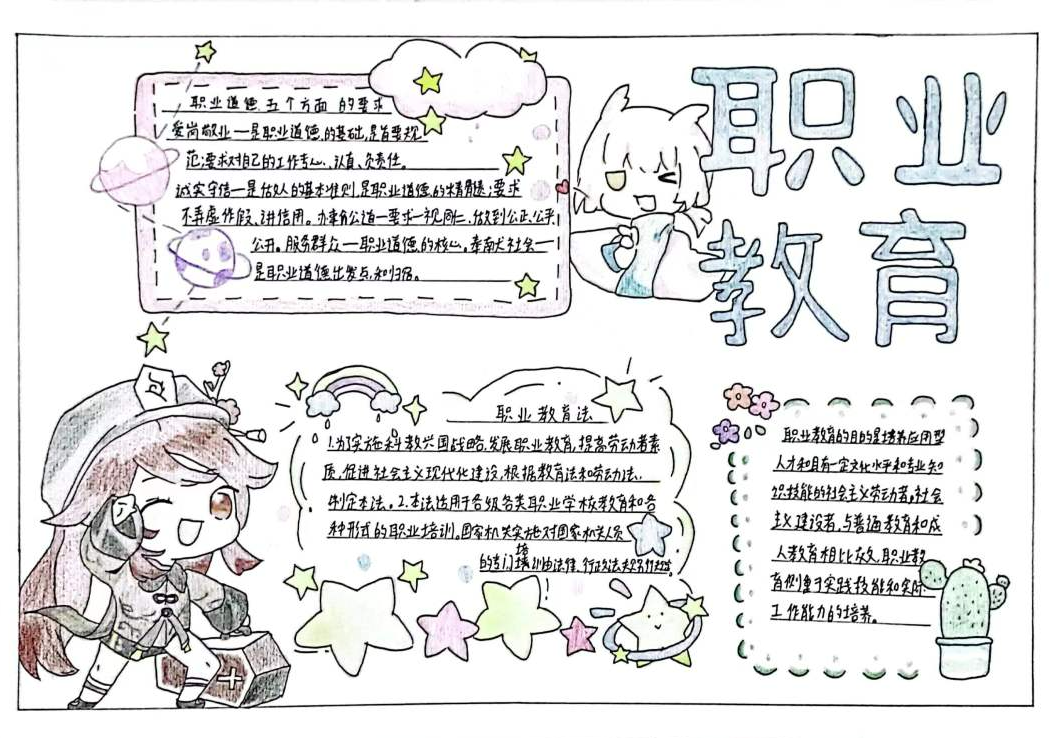 职业
教育
职业道德五个方面的要求
爱岗敬业一是职业道德的基础,是首要规
范,要求对自己的工作专心、认真、负责任。
诚实守信一是做人的基本准则,是职业道德的精髓;要求
不弄虚作假、讲信用。办事公道一要求一视同仁,做到公正、公平
公开。服务群众一职业道德的核心,奉献社会一
是职业道德出发点和归宿。
职业教育法
1.为实施科教兴国战略,发展职业教育,提高劳动者素
质,促进社会主义现代化建设,根据教育法和劳动法、
制定本法。2.本法适用于各级各类职业学校教育和各
种形式的职业培训。国家机关实施对国家机关人员
的专门培训由法律、行政法
职业教育的目的是培养应用型
人才和具有一定文化水平和专业知
识技能的社会主义劳动者,社会
主义建设者,与普通教育和成
人教育相比较,职业教
育侧重于实践技能和实际
工作能力的培养。